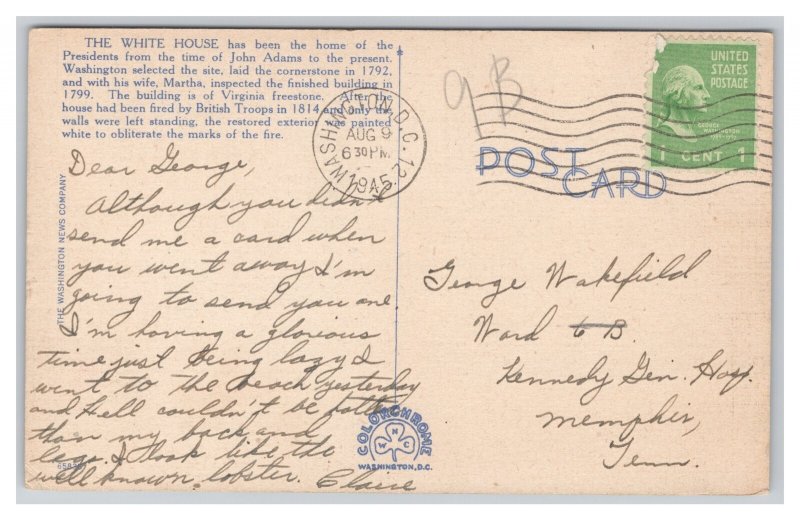 THE WHITE HOUSE has been the home of the
Presidents from the time of John Adams to the present.
Washington selected the site, laid the cornerstone in 1792,
and with his wife, Martha, inspected the finished building in
1799. The building is of Virginia freestone. After the
house had been fired by British Troops in 1814 and only the
walls were left standing, the restored exterior was painted
white to obliterate the marks of the fire.
Dear George,
Although you didn't
send me a card when
you went away I'm
going to send you one.
I'm having a glorious
time just being lazy. I
went to the beach yesterday
and hell couldn't be hotter
than my back and
legs. I look like the
well known lobster.
Claire
THE WASHINGTON NEWS COMPANY
WASHINGTON, D.C. 12
AUG 9
6 30 PM
1945
9B
POST
CARD
UNITED
STATES
POSTAGE
GEORGE
WASHINGTON
1789-1797
1 CENT 1
George Wakefield
Ward 6 B
Kennedy Gen. Hosp.
Memphis,
Tenn.
COLORCHROME
W N C
WASHINGTON, D.C.